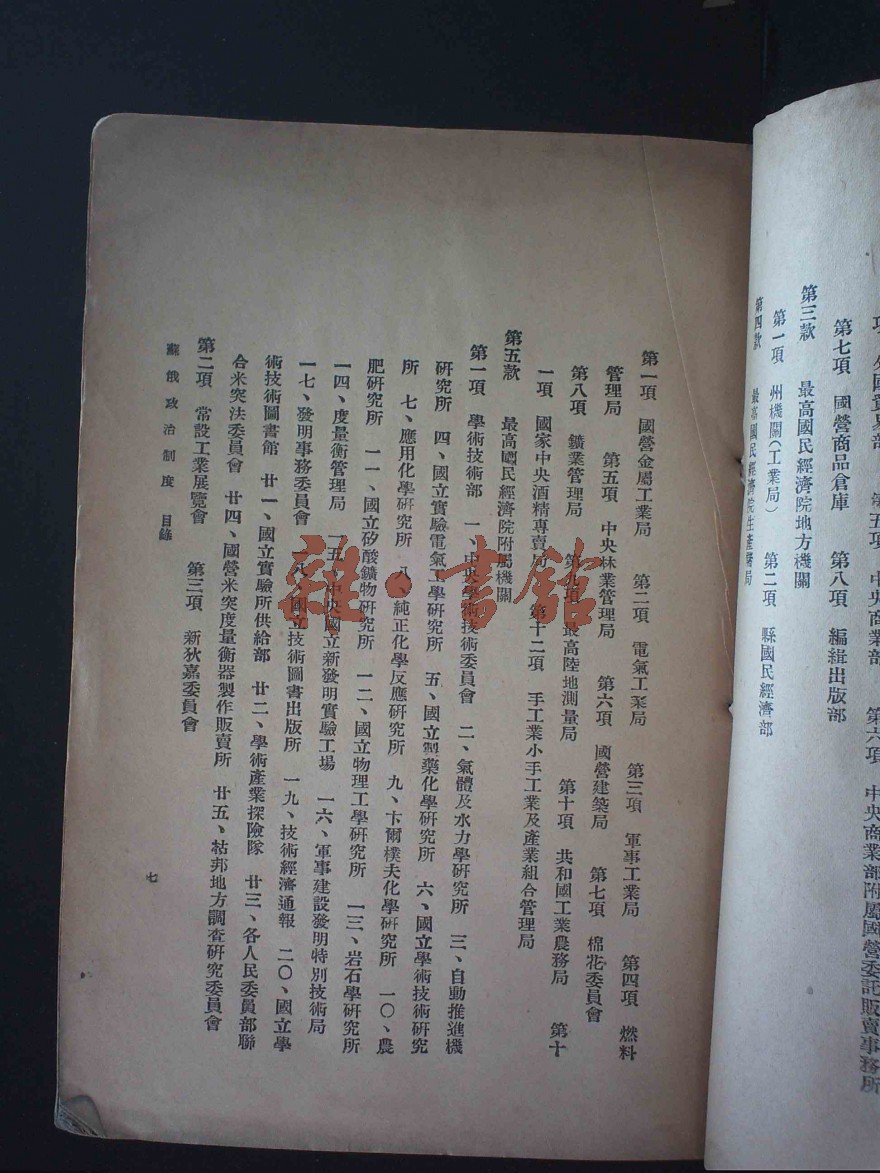 項 外國貿易部 第五項 中央商業部 第六項 中央商業部附屬國營委託販賣事務所
第七項 國營商品倉庫 第八項 編緝出版部
第三款 最高國民經濟院地方機關
第一項 州機關(工業局) 第二項 縣國民經濟部
第四款 最高國民經濟院生產諸局
第一項 國營金屬工業局 第二項 電氣工業局 第三項 軍事工業局 第四項 燃料
管理局 第五項 中央林業管理局 第六項 國營建築局 第七項 棉花委員會
第八項 鑛業管理局 第九項 最高陸地測量局 第十項 共和國工業農務局 第十
一項 國家中央酒精專賣局 第十二項 手工業小手工業及產業組合管理局
第五款 最高國民經濟院附屬機關
第一項 學術技術部 一、中央學術技術委員會 二、氣體及水力學研究所 三、自動推進機
研究所 四、國立實驗電氣工學研究所 五、國立製藥化學研究所 六、國立學術技術研究
所 七、應用化學研究所 八、純正化學反應研究所 九、卞爾樸夫化學研究所 一〇、農
肥研究所 一一、國立矽酸鑛物研究所 一二、國立物理工學研究所 一三、岩石學研究所
一四、度量衡管理局 一五、中央國立新發明實驗工場 一六、軍事建設發明特別技術局
一七、發明事務委員會 一八、國立技術圖書出版所 一九、技術經濟通報 二〇、國立學
術技術圖書館 廿一、國立實驗所供給部 廿二、學術產業探險隊 廿三、各人民委員部聯
合米突法委員會 廿四、國營米突度量衡器製作販賣所 廿五、枯邦地方調查研究委員會
第二項 常設工業展覽會 第三項 新狄嘉委員會
蘇俄政治制度 目錄
七
雜·書館